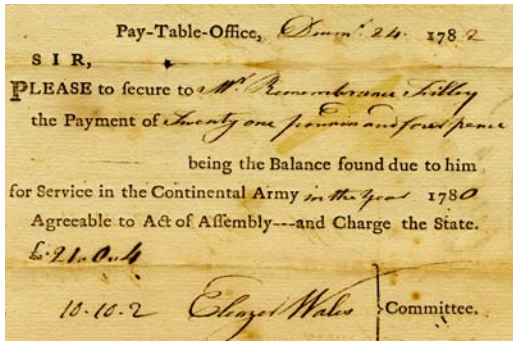 Pay-Table-Office, Decemr. 24. 1782
SIR,
PLEASE to ſecure to Mr. Remembrance Filley
the Payment of Twenty one pounds and four pence
being the Balance found due to him
for Service in the Continental Army in the Year 1780
Agreeable to Act of Aſſembly---and Charge the State.
£.21.0.4
10.10.2 Eleazer Wales } Committee.